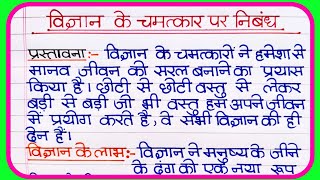 विज्ञान के चमत्कार पर निबंध
प्रस्तावना:- विज्ञान के चमत्कारों ने हमेशा से
मानव जीवन को सरल बनाने का प्रयास
किया है। छोटी से छोटी वस्तु से लेकर
बड़ी से बड़ी जो भी वस्तु हम अपने जीवन
से प्रयोग करते हैं, वे सभी विज्ञान की ही
देन हैं।
विज्ञान के लाभ:- विज्ञान ने मनुष्य के जीने
के ढंग को एक नया रूप